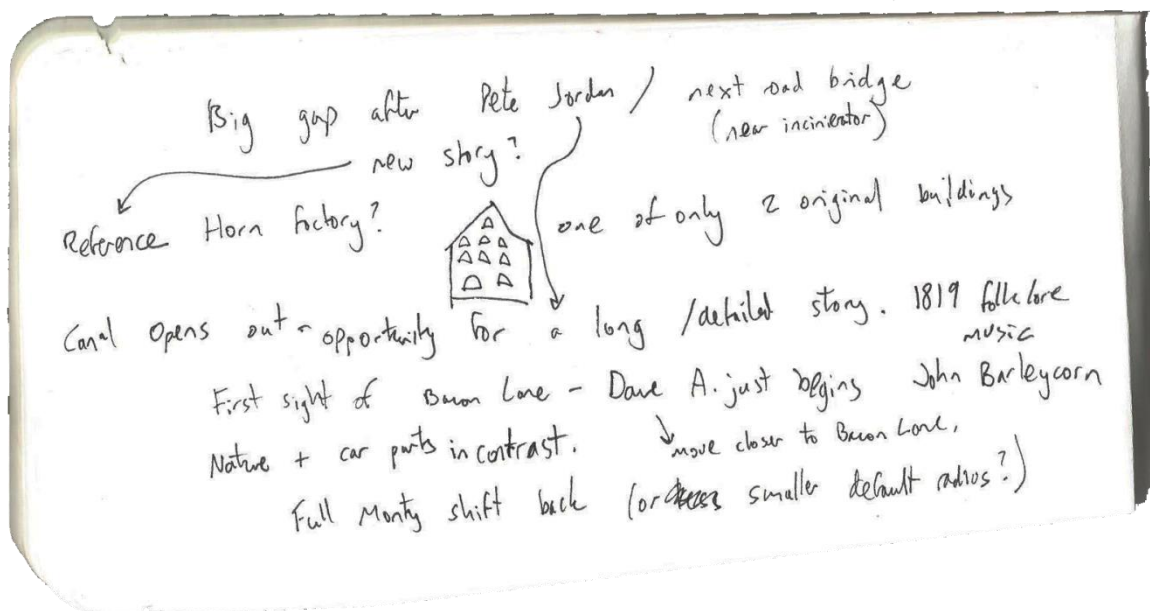 Big gap after Pete Jordan / next road bridge
(near incinierator)
new story?
Reference Horn factory?
one of only 2 original buildings
Canal opens out - opportunity for a long / detailed story. 1819 folklore
music
First sight of Bacon Lane - Dave A. just begins John Barleycorn
Nature + car parts in contrast.
move closer to Bacon Lane.
Full Monty shift back (or smaller default radius?)